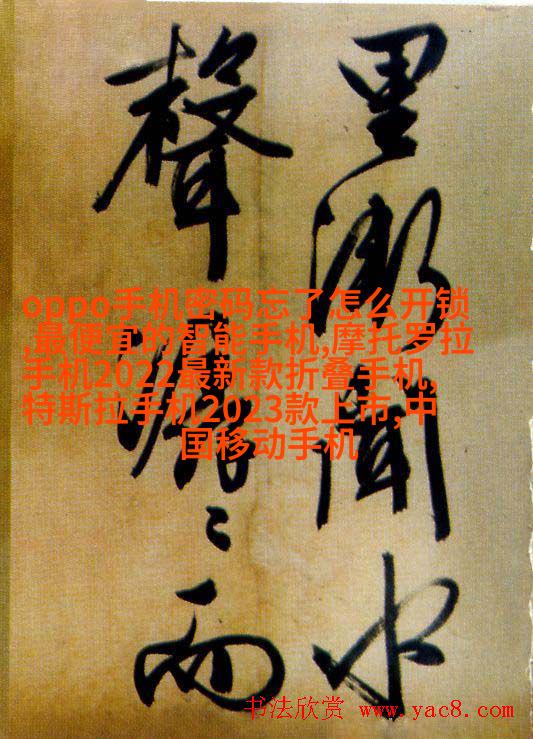 里漸聞水
聲潺々而
oppo手机密码忘了怎么开锁
,最便宜的智能手机,摩托罗拉
手机2022最新款折叠手机,
特斯拉手机2023款上市,中
国移动手机
书法欣赏 www.yac8.com